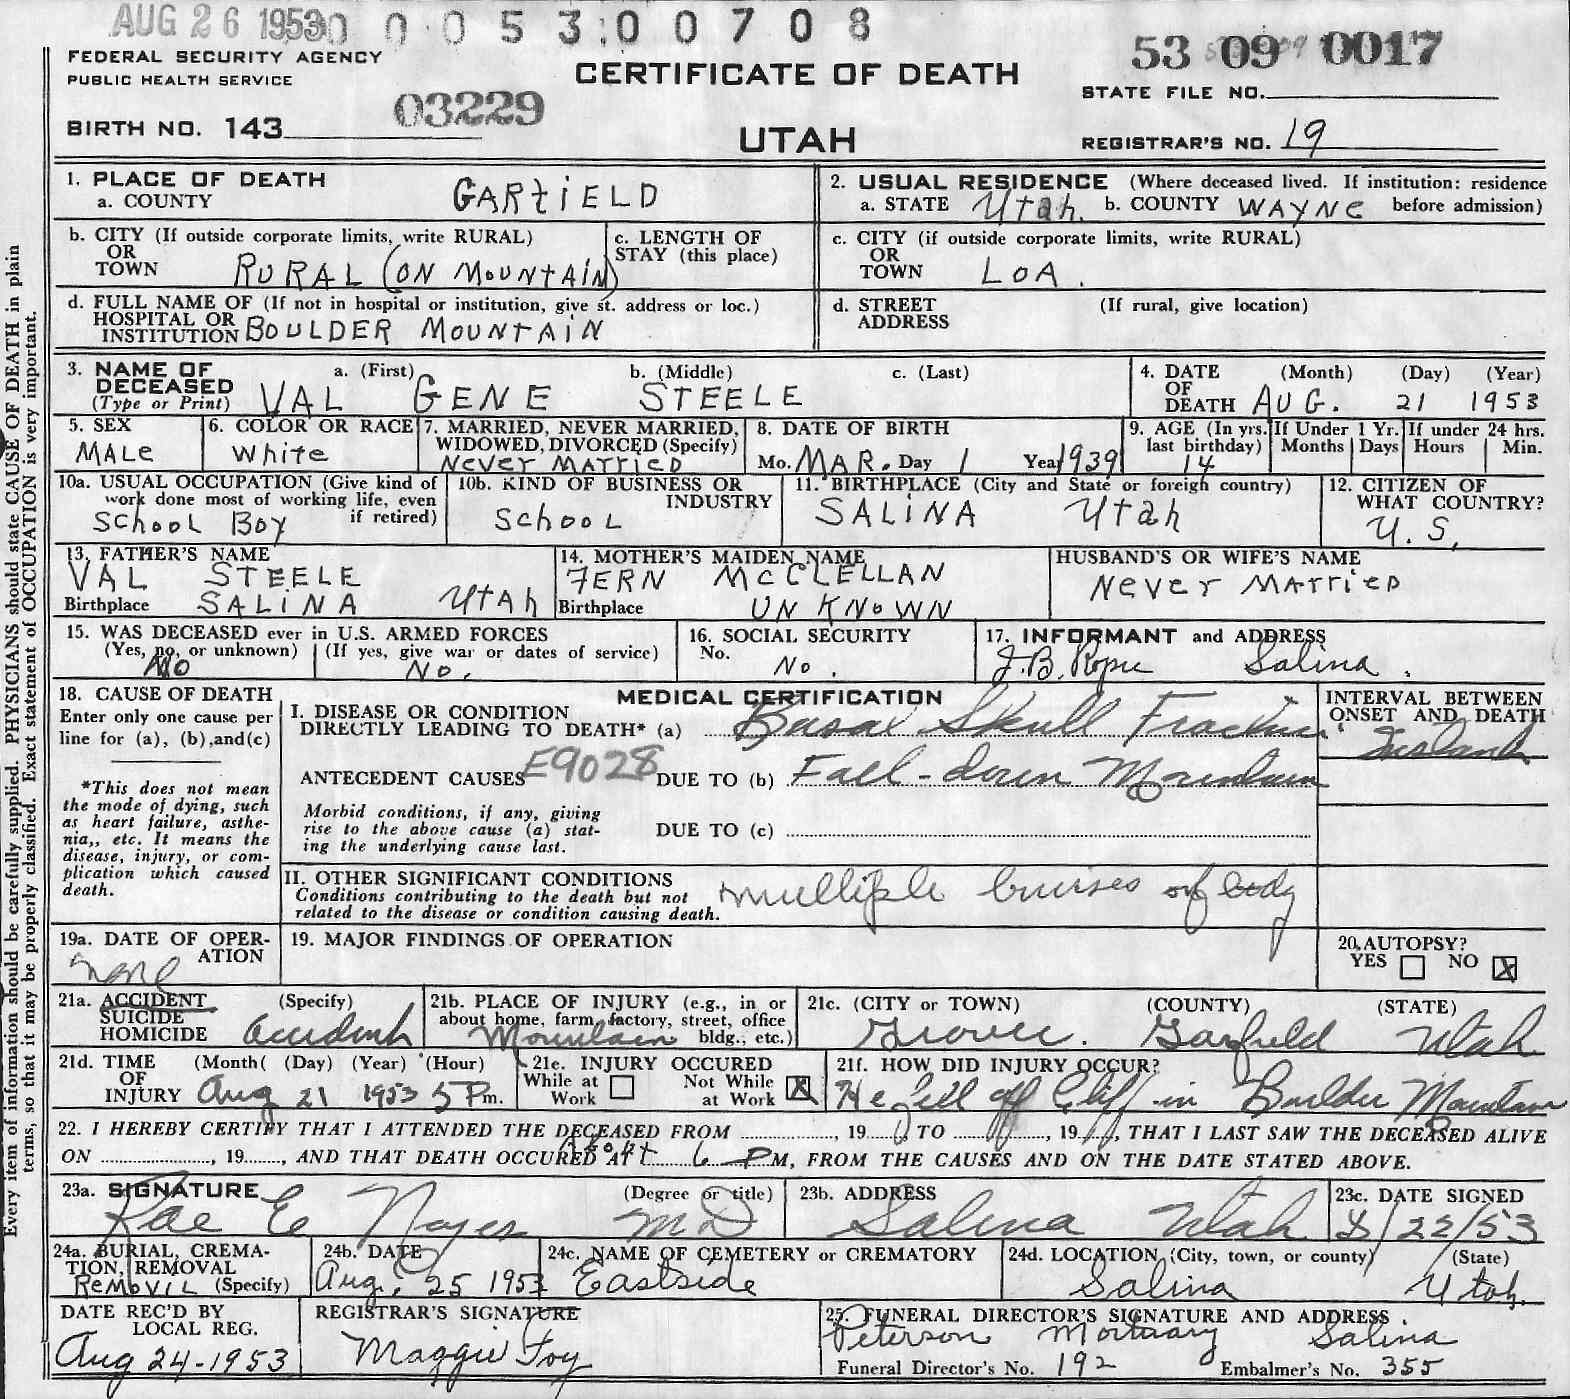 AUG 26 1953 0 0 0 5 3 0 0 7 0 8
FEDERAL SECURITY AGENCY
PUBLIC HEALTH SERVICE
CERTIFICATE OF DEATH
53 09 0017
STATE FILE NO.
03229
BIRTH NO. 143
UTAH
REGISTRAR'S NO. 19
1. PLACE OF DEATH
a. COUNTY GARFIELD
2. USUAL RESIDENCE (Where deceased lived. If institution: residence
a. STATE Utah. b. COUNTY WAYNE before admission)
b. CITY (If outside corporate limits, write RURAL)
OR
TOWN RURAL (ON MOUNTAIN)
c. LENGTH OF
STAY (this place)
c. CITY (if outside corporate limits, write RURAL)
OR
TOWN LOA.
d. FULL NAME OF (If not in hospital or institution, give st. address or loc.)
HOSPITAL OR
INSTITUTION BOULDER MOUNTAIN
d. STREET (If rural, give location)
ADDRESS
3. NAME OF a. (First) b. (Middle) c. (Last)
DECEASED
(Type or Print) VAL GENE STEELE
4. DATE (Month) (Day) (Year)
OF
DEATH AUG. 21 1953
5. SEX
MALE
6. COLOR OR RACE
White
7. MARRIED, NEVER MARRIED,
WIDOWED, DIVORCED (Specify)
NEVER MARRIED
8. DATE OF BIRTH
Mo. MAR. Day 1 Year 1939
9. AGE (In yrs. last birthday) 14
If Under 1 Yr. Months Days
If under 24 hrs. Hours Min.
10a. USUAL OCCUPATION (Give kind of
work done most of working life, even
if retired)
School Boy
10b. KIND OF BUSINESS OR
INDUSTRY
School
11. BIRTHPLACE (City and State or foreign country)
SALINA Utah
12. CITIZEN OF
WHAT COUNTRY?
U.S.
13. FATHER'S NAME
VAL STEELE
Birthplace SALINA Utah
14. MOTHER'S MAIDEN NAME
FERN McCLELLAN
Birthplace UNKNOWN
HUSBAND'S OR WIFE'S NAME
Never MARRIED
15. WAS DECEASED ever in U.S. ARMED FORCES
(Yes, no, or unknown) (If yes, give war or dates of service)
No No.
16. SOCIAL SECURITY
No. No.
17. INFORMANT and ADDRESS
J.B. Salina.
18. CAUSE OF DEATH
Enter only one cause per
line for (a), (b), and (c)
*This does not mean
the mode of dying, such
as heart failure, asthe-
nia,, etc. It means the
disease, injury, or com-
plication which caused
death.
MEDICAL CERTIFICATION
I. DISEASE OR CONDITION
DIRECTLY LEADING TO DEATH* (a) Basal Skull Fracture
ANTECEDENT CAUSES E9028 DUE TO (b) Fall-down Mountain
Morbid conditions, if any, giving
rise to the above cause (a) stat-
ing the underlying cause last.
DUE TO (c)
II. OTHER SIGNIFICANT CONDITIONS
Conditions contributing to the death but not
related to the disease or condition causing death.
multiple bruises of body
INTERVAL BETWEEN
ONSET AND DEATH
19a. DATE OF OPER-
ATION
none
19. MAJOR FINDINGS OF OPERATION
20. AUTOPSY?
YES NO X
21a. ACCIDENT (Specify)
SUICIDE
HOMICIDE accident
21b. PLACE OF INJURY (e.g., in or
about home, farm, factory, street, office
bldg., etc.)
Mountain
21c. (CITY or TOWN) (COUNTY) (STATE)
Grover. Garfield Utah
21d. TIME (Month( (Day) (Year) (Hour)
OF
INJURY Aug 21 1953 5 Pm.
21e. INJURY OCCURED
While at Work Not While at Work X
21f. HOW DID INJURY OCCUR?
He fell off Cliff in Boulder Mountain
22. I HEREBY CERTIFY THAT I ATTENDED THE DECEASED FROM , 19 , TO , 19 , THAT I LAST SAW THE DECEASED ALIVE
ON , 19 , AND THAT DEATH OCCURED AT 6 PM, FROM THE CAUSES AND ON THE DATE STATED ABOVE.
23a. SIGNATURE (Degree or title)
Rae E Noyes M.D
23b. ADDRESS
Salina Utah
23c. DATE SIGNED
8/22/53
24a. BURIAL, CREMA-
TION, REMOVAL
(Specify)
REMOVIL
24b. DATE
Aug. 25 1953
24c. NAME OF CEMETERY or CREMATORY
Eastside
24d. LOCATION (City, town, or county) (State)
Salina Utah.
DATE REC'D BY
LOCAL REG.
Aug 24-1953
REGISTRAR'S SIGNATURE
Maggie Foy
25. FUNERAL DIRECTOR'S SIGNATURE AND ADDRESS
Peterson Mortuary Salina
Funeral Director's No. 192 Embalmer's No. 355
Every item of information should be carefully supplied. PHYSICIANS should state CAUSE OF DEATH in plain
terms, so that it may be properly classified. Exact statement of OCCUPATION is very important.